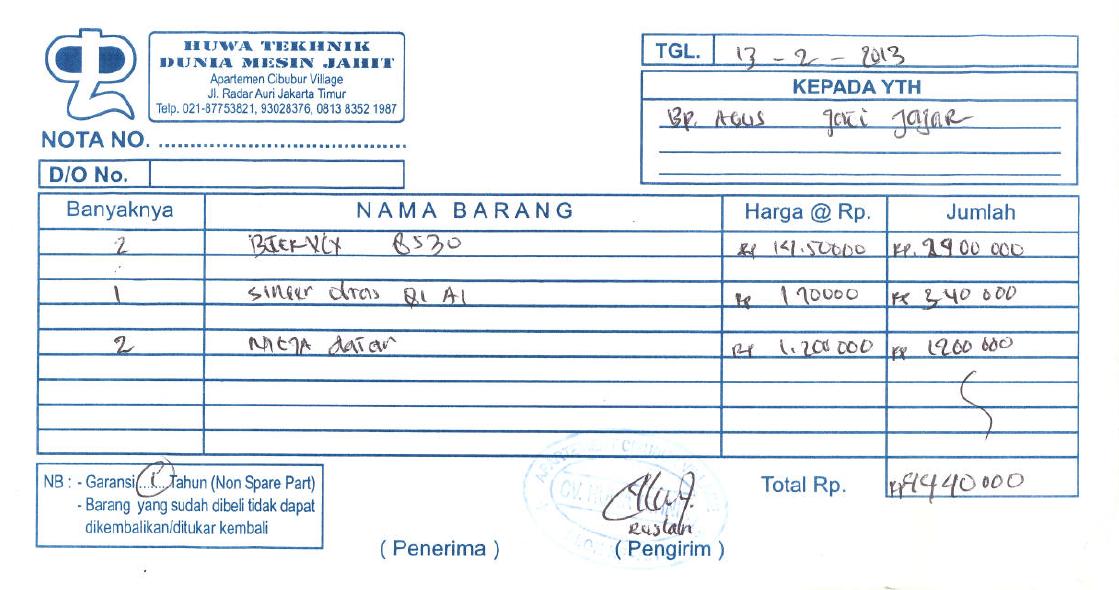 HUWA TEKHNIK
DUNIA MESIN JAHIT
Apartemen Cibubur Village
Jl. Radar Auri Jakarta Timur
Telp. 021-87753821, 93028376, 0813 8352 1987
NOTA NO. ........................................
D/O No.
TGL. 13 - 2 - 2013
KEPADA YTH
BP. AGUS jati jajar
Banyaknya NAMA BARANG Harga @ Rp. Jumlah
2 8530 Rp 14.50000 Rp. 2900 000
1 singer Rp 170000 Rp 340 000
2 MEJA datar Rp 1.200 000 Rp 1200 000
NB : - Garansi 1 Tahun (Non Spare Part)
- Barang yang sudah dibeli tidak dapat
dikembalikan/ditukar kembali
Total Rp. Rp 4440000
Ruslan
( Penerima ) ( Pengirim )